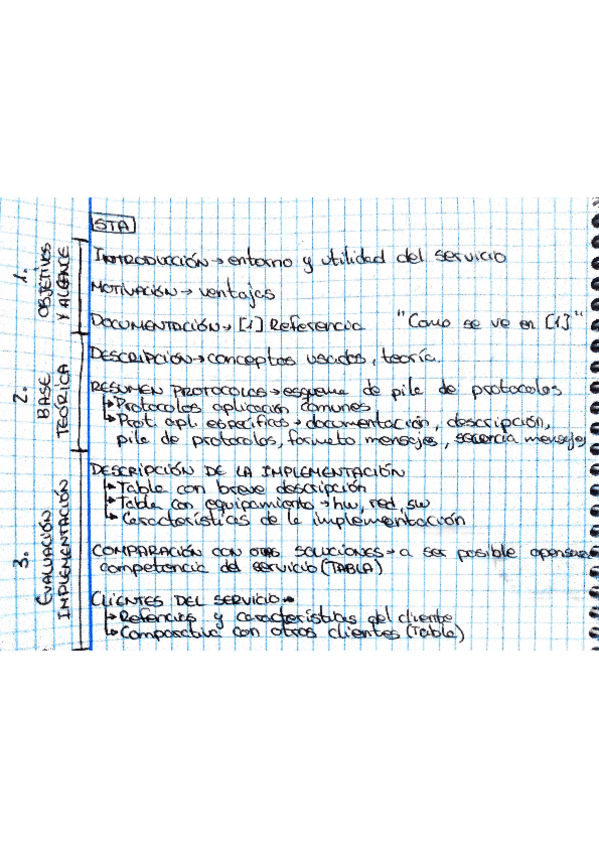 STA
1. OBJETIVOS Y ALCANCE
INTRODUCCIÓN → entorno y utilidad del servicio
MOTIVACIÓN → ventajas
DOCUMENTACIÓN → [1] Referencia "Como se ve en [1]"
2. BASE TEÓRICA
DESCRIPCIÓN → conceptos usados, teoría.
RESUMEN PROTOCOLOS → esquema de pila de protocolos
↳ Protocolos aplicación comunes
↳ Prot. apli. específicos → documentación, descripción,
pila de protocolos, formato mensajes, mensajes
3. EVALUACIÓN IMPLEMENTACIÓN
DESCRIPCIÓN DE LA IMPLEMENTACIÓN
↳ Tabla con breve descripción
↳ Tabla con equipamiento → hw, red, sw
↳ Características de la implementación
COMPARACIÓN CON OTRAS SOLUCIONES → a ser posible
competencia del servicio (TABLA)
CLIENTES DEL SERVICIO →
↳ Refencias y características del cliente
↳ Comparativa con otros clientes (Tabla)